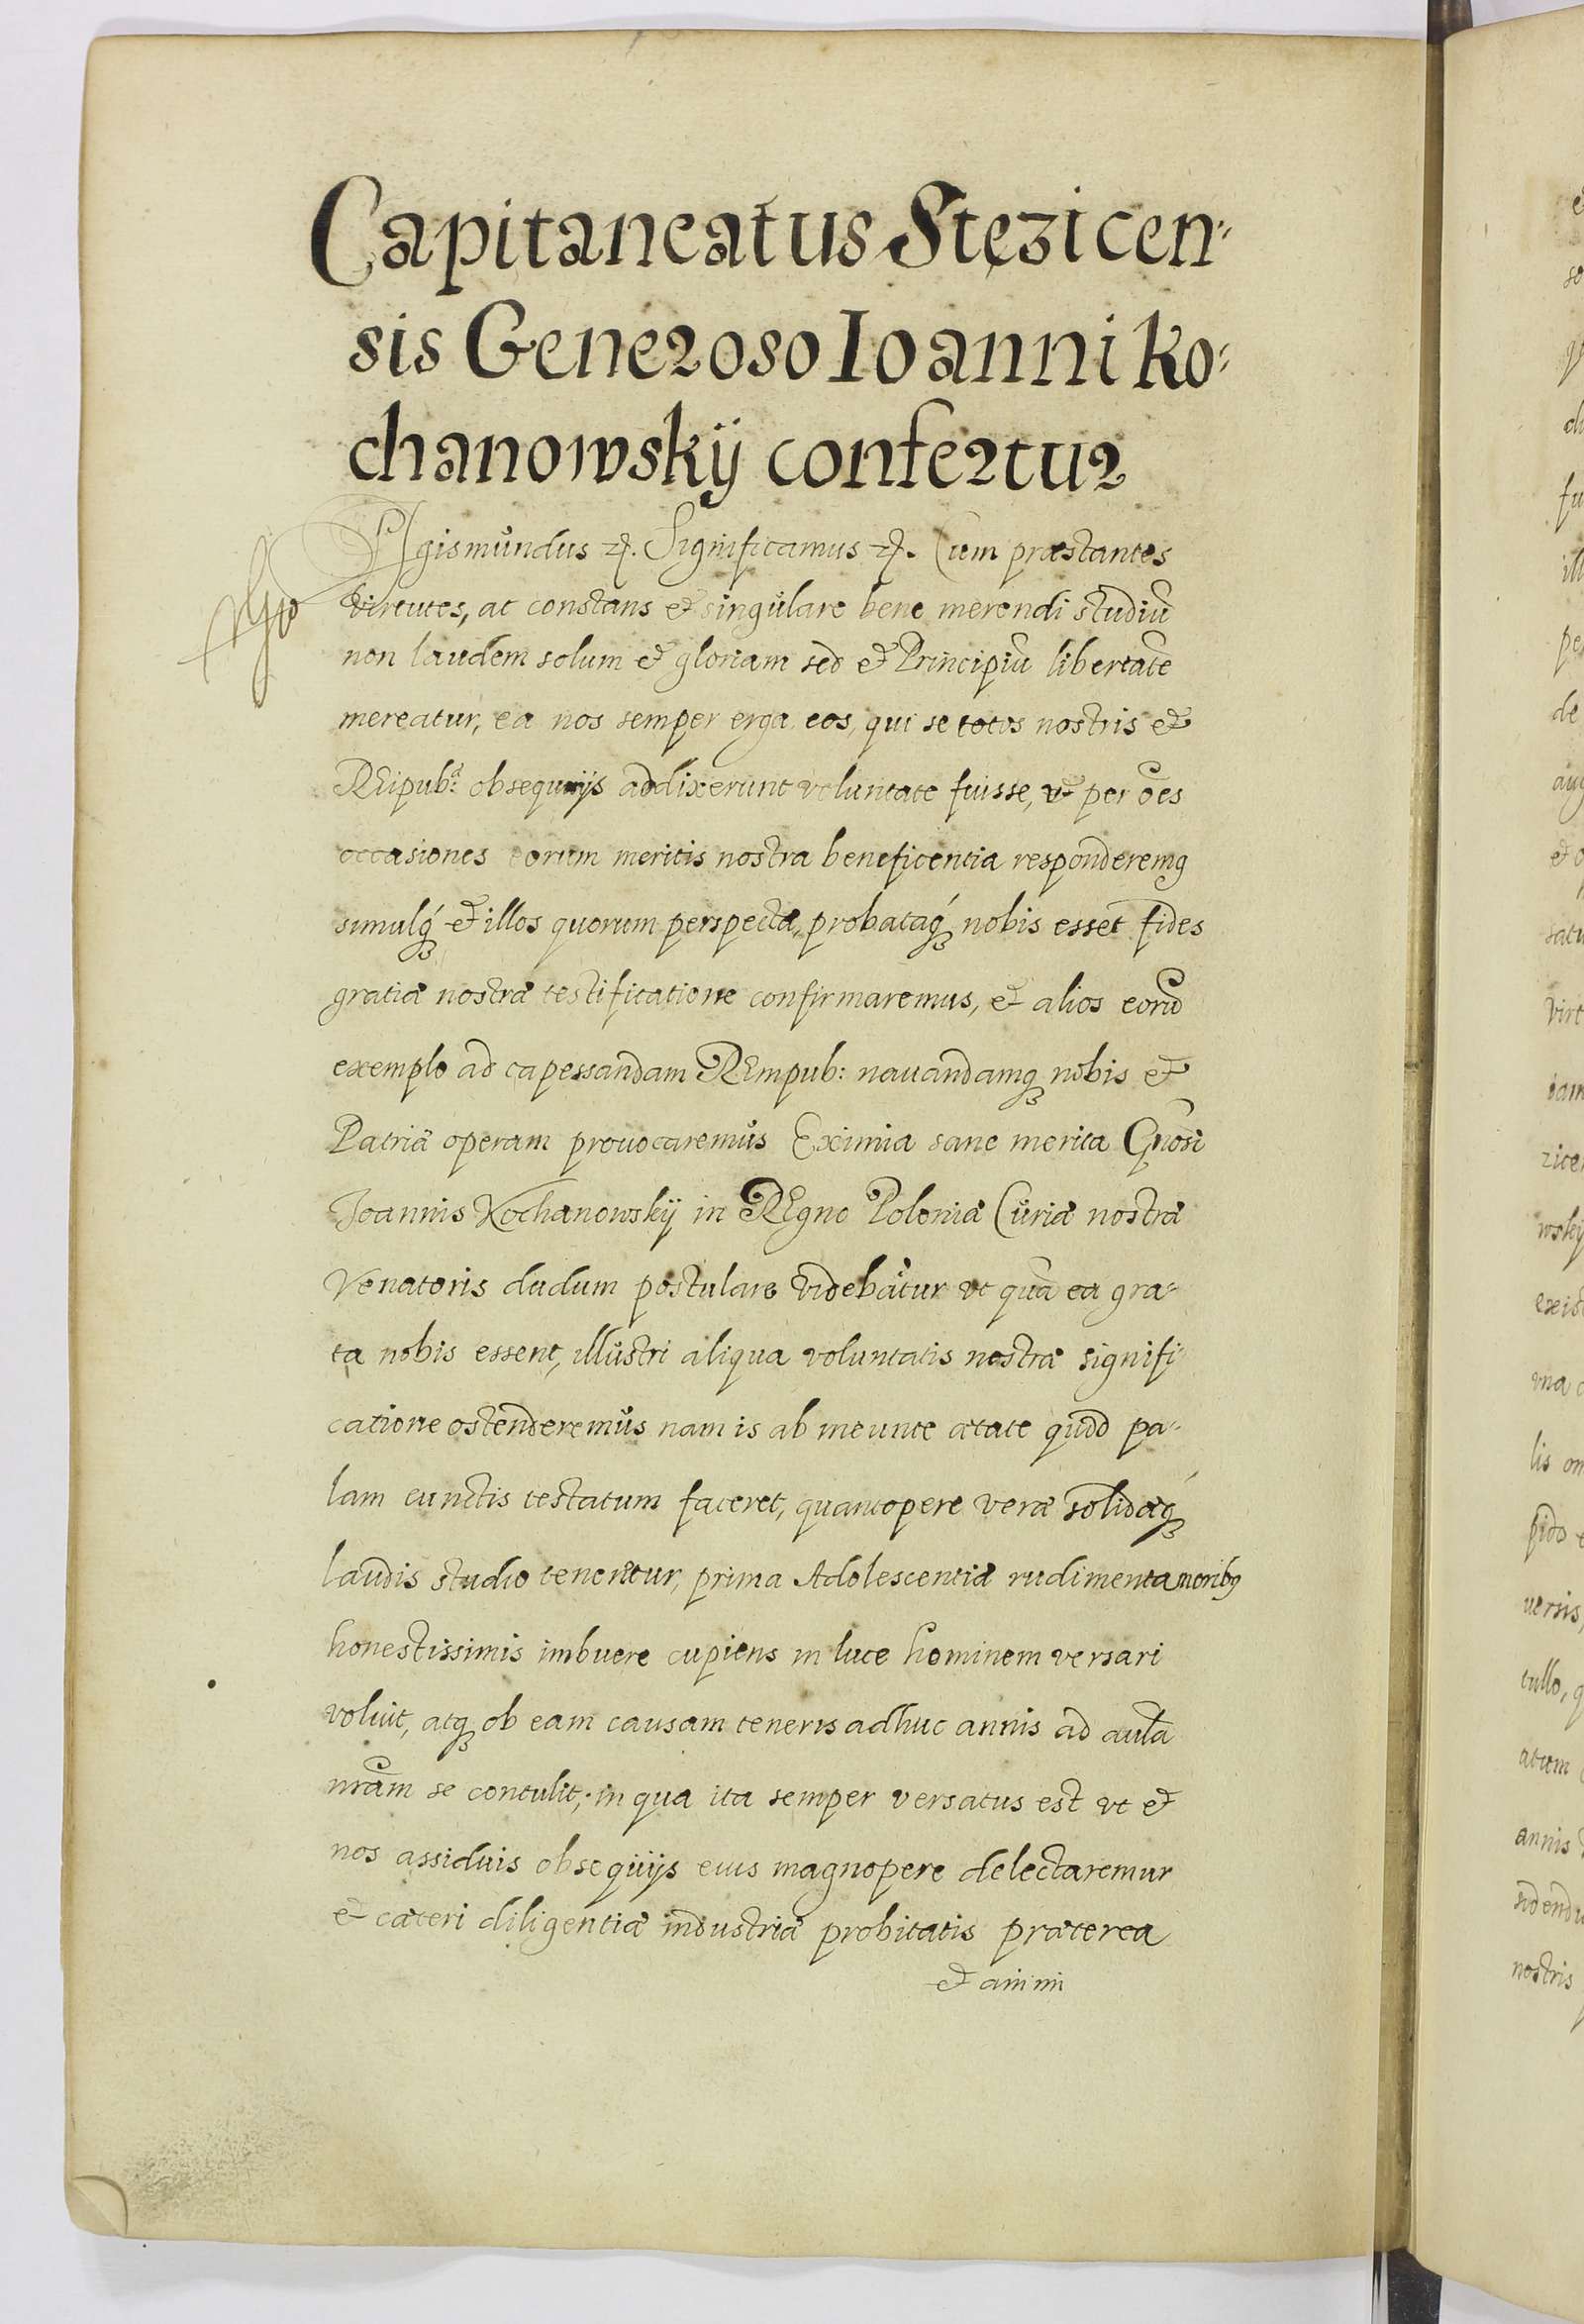 Capitaneatus Stęzicen-
sis Generoso Ioanni Ko-
chanowskÿ confertur
Sigismundus etc. Significamus etc. Cum præstantes
virtutes, ac constans et singulare bene merendi studiū
non laudem solum et gloriam sed et Principiū libertatē
mereatur, ea nos semper erga eos, qui se totos nostris et
REipubᵃ: obsequijs addixerunt voluntate fuisse, vt per oēs
occasiones eorum meritis nostra beneficentia responderemꝰ
simulq́ꝫ et illos quorum perspecta, probataq́ꝫ nobis esset fides
gratiæ nostræ testificatione confirmaremus, et alios eorū
exemplo ad capessandam REmpub: nauandamqꝫ nobis et
Patriæ operam prouocaremus Eximia sane merita Gn̄osi
Joannis Kochanowskÿ in REgno Poloniæ Curiæ nostræ
Venatoris dudum postulare videbātur vt quā ea gra-
ta nobis essent, illustri aliqua voluntatis nostræ signifi-
catione ostenderemus nam is ab ineunte ætate quod pa-
lam cunctis testatum faceret, quantopere veræ solidæq́ꝫ
laudis studio teneretur, prima Adolescentiæ rudimenta moribꝰ
honestissimis imbuere cupiens in luce hominem versari
voluit, atqꝫ ob eam causam teneris adhuc annis ad aulā
nr̄am se contulit; in qua ita semper versatus est vt et
nos assiduis obsequijs eius magnopere delectaremur
et cæteri diligentiæ industriæ probitatis præterea
et animi